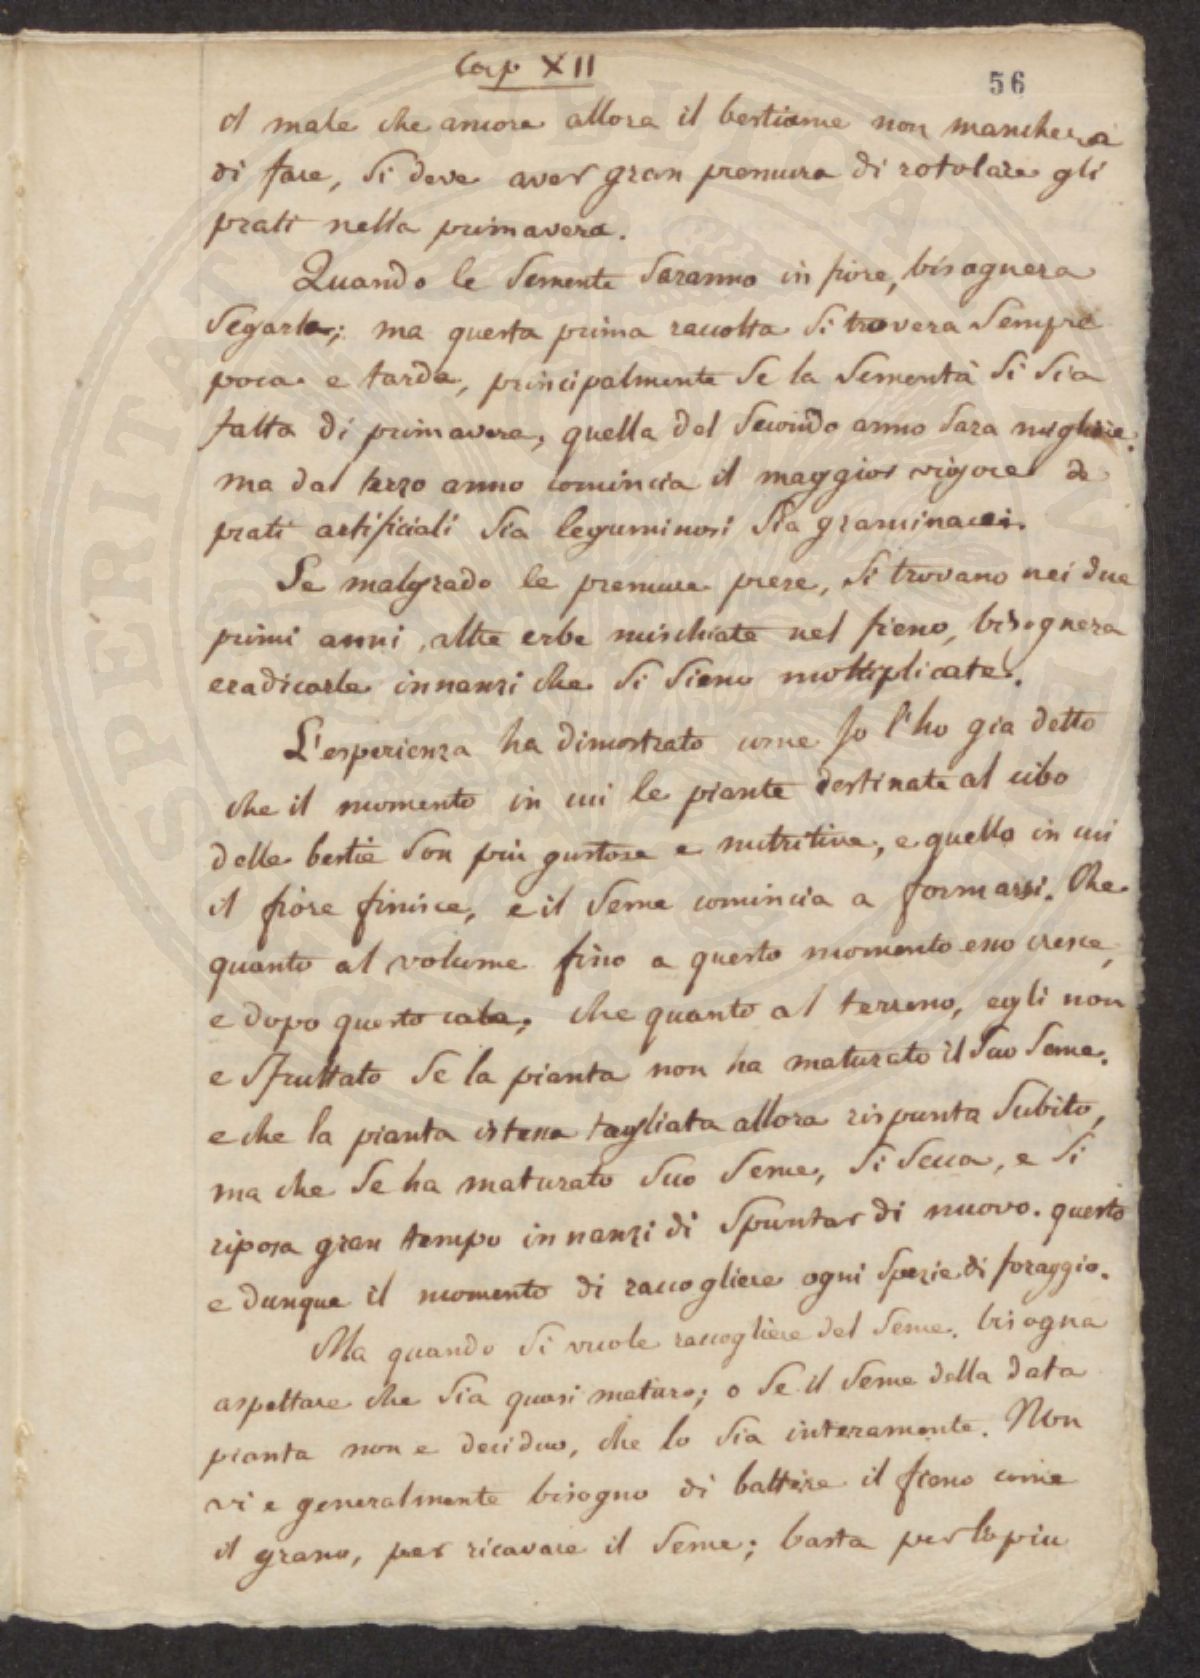 Cap XII
56
il male che ancora allora il bestiame non manchera
di fare, si deve aver gran premura di rotolare gli
prati nella primavera.
Quando le semente saranno in fiore, bisognera
segarle; ma questa prima raccolta si trovera sempre
poca e tarda, principalmente se la sementa si sia
fatta di primavera, quella del secondo anno sara migliore.
ma dal terzo anno comincia il maggior vigore de
prati artificiali sia leguminosi sia graminacei.
Se malgrado le premure prese, si trovano nei due
primi anni, altre erbe mischiate nel fieno, bisognera
eradicarle innanzi che si sieno moltiplicate.
L'esperienza ha dimostrato come Jo l'ho gia detto
che il momento in cui le piante destinate al cibo
delle bestie son piu gustose e nutritive, e quello in cui
il fiore finisce, e il seme comincia a formarsi. Che
quanto al volume fino a questo momento esso cresce,
e dopo questo cala; che quanto al terreno, egli non
e sfruttato se la pianta non ha maturato il suo seme.
e che la pianta istessa tagliata allora rispunta subito,
ma che se ha maturato suo seme, si secca, e si
riposa gran tempo innanzi di spuntar di nuovo. questo
e dunque il momento di raccogliere ogni spezie di foraggio.
Ma quando si vuole raccogliere del seme, bisogna
aspettare che sia quasi maturo; o se il seme della data
pianta non e deciduo, che lo sia interamente. Non
vi e generalmente bisogno di battere il fieno come
il grano, per ricavare il seme; basta per lo piu